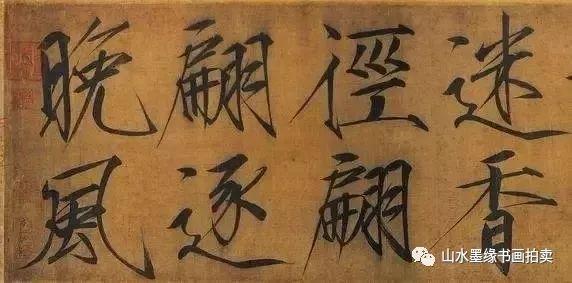 迷香
徑翩
翩逐
晚風
山水墨缘书画拍卖